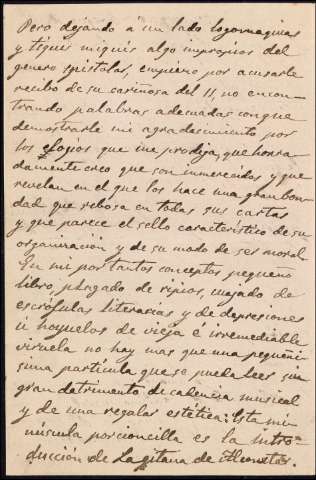 Pero dejando á un lado logomaquias
y tiquis miquis algo impropios del
genero epistolar, empiezo por acusarle
recibo de su cariñosa del 11, no encon-
trando palabras adecuadas con que
demostrarle mi agradecimiento por
los elogios que me prodiga, que honra-
damente creo que son inmerecidos y que
revelan en el que los hace una gran bon-
dad que rebosa en todas sus cartas
y que parece el sello característico de su
organización y de su modo de ser moral.
En mi por tantos conceptos pequeño
libro, plagado de ripios, cuajado de
escrófulas literarias y de depresiones
ú hoyuelos de vieja é irremediable
viruela no hay mas que una pequeñi-
sima partícula que se pueda leer sin
gran detrimento de cadencia musical
y de una regular estética: Esta mi-
núscula porcioncilla es la intro-
ducción de La gitana de Alconetar.